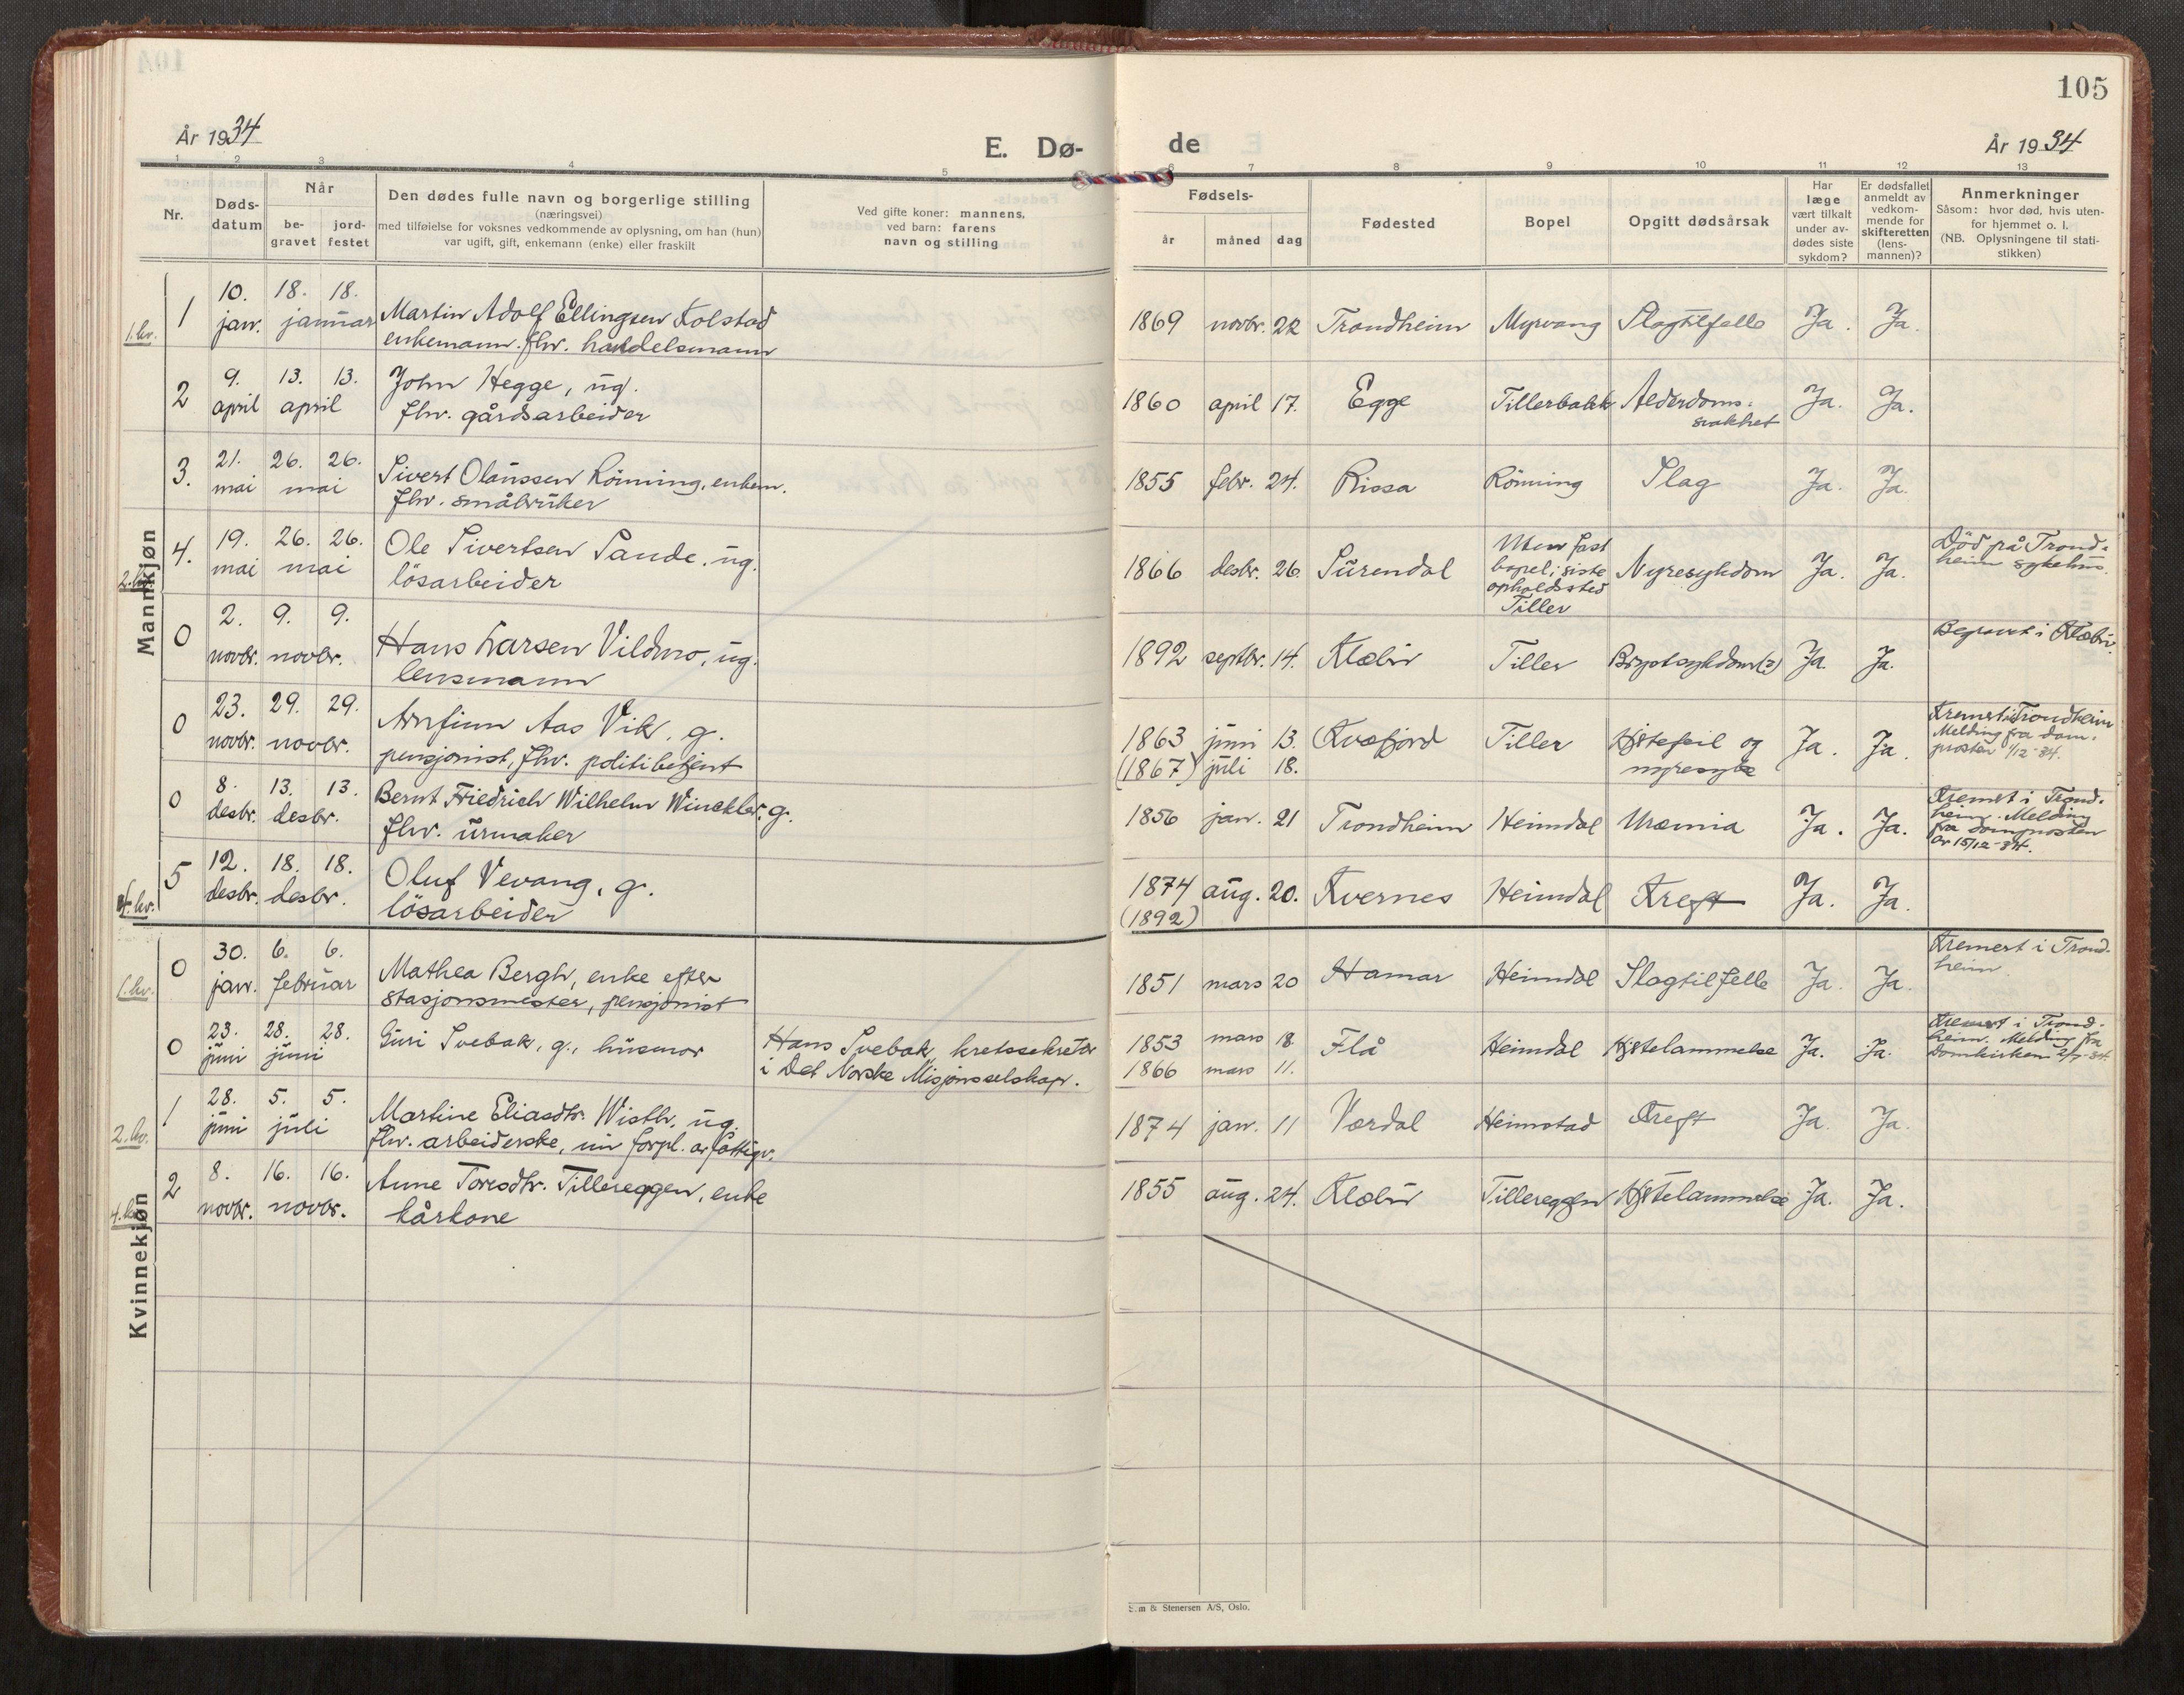 105
År 1934
E. Dø-
de
År 1934
1 2 3 4 5 6 7 8 9 10 11 12 13
Nr.
Døds-
datum
Når
be-
gravet
jord-
festet
Den dødes fulle navn og borgerlige stilling
(næringsvei)
med tilføielse for voksnes vedkommende av oplysning, om han (hun)
var ugift, gift, enkemann (enke) eller fraskilt
Ved gifte koner: mannens,
ved barn: farens
navn og stilling
Fødsels-
år
måned
dag
Fødested
Bopel
Opgitt dødsårsak
Har
læge
vært tilkalt
under av-
dødes siste
sykdom?
Er dødsfallet
anmeldt av
vedkom-
mende for
skifteretten
(lens-
mannen)?
Anmerkninger
Såsom: hvor død, hvis uten-
for hjemmet o. l.
(NB. Oplysningene til stati-
stikken)
Mannkjøn
1.kv.
1 10. 18. 18.
jan. januar
Martin Adolf Ellingsen Kolstad
enkemann. fhv. handelsmann
1869 novbr. 22 Trondheim Myrvang Slagtilfelle Ja. Ja.
2 9. 13. 13.
april april
John Hegge, ug.
fhv. gårdsarbeider
1860 april 17. Egge Tillerbakk Alderdoms-
svakhet
Ja. Ja.
3. 21. 26. 26.
mai mai
Sivert Olaussen Rönning, enkem.
fhv. småbruker
1855 febr. 24. Rissa Rönning Slag Ja. Ja.
2.kv.
4. 19. 26. 26.
mai mai
Ole Sivertsen Sande, ug.
lösarbeider
1866 desbr. 26. Surendal
Uten fast
bopel; siste
opholdssted
Tiller
Nyresykdom Ja. Ja.
Död på Trond-
heim sykehus.
0 2. 9. 9.
novbr. novbr.
Hans Larsen Vildmo, ug.
lensmann
1892 septbr. 14. Klæbu Tiller Brystsykdom(?) Ja. Ja.
Begravet i Klæbu.
0 23. 29. 29.
novbr. novbr.
Arnfinn Aas Vik, g.
pensjonist, fhv. politibetjent
1863 juni 13. Kvæfjord Tiller Hjertefeil og
nyresyke
(1867) juli 18.
Ja. Ja.
Kremert i Trondheim
Melding fra dom-
prosten 1/12-34.
0 8. 13. 13.
desbr. desbr.
Bernt Friedrich Wilhelm Winckler, g.
fhv. urmaker
1856 jan. 21 Trondheim Heimdal Uræmia Ja. Ja.
Kremert i Trond-
heim. Melding
fra domprosten
av 15/12-34.
4.kv.
5 12. 18. 18.
desbr. desbr.
Oluf Vevang, g.
lösarbeider
1874 aug. 20. Kvernes Heimdal Kreft Ja. Ja.
(1892)
Kvinnekjøn
1.kv.
0 30. 6. 6.
jan. februar
Mathea Bergh, enke efter
stasjonsmester, pensjonist
1851 mars 20 Hamar Heimdal Slagtilfelle Ja. Ja.
Kremert i Trond-
heim.
0 23. 28. 28.
juni juni
Guri Svebak, g., husmor
Hans Svebak, kretssekretær
i Det Norske Misjonsselskap.
1853 mars 18. Flå Heimdal Hjertelammelse Ja. Ja.
1866 mars 11.
Kremert i Trond-
heim. Melding fra
Domkirken 2/7-34.
2.kv.
1 28. 5. 5.
juni juli
Martine Eliasdtr. Wisth, ug.
fhv. arbeiderske, nu forpl. av fattigv.
1874 jan. 11 Værdal Heimstad Kreft Ja. Ja.
4.kv.
2 8. 16. 16.
novbr. novbr.
Anne Toresdtr. Tillereggen, enke
kårkone
1855 aug. 24. Klæbu Tillereggen Hjertelammelse Ja. Ja.
& Stenersen A/S, Oslo.